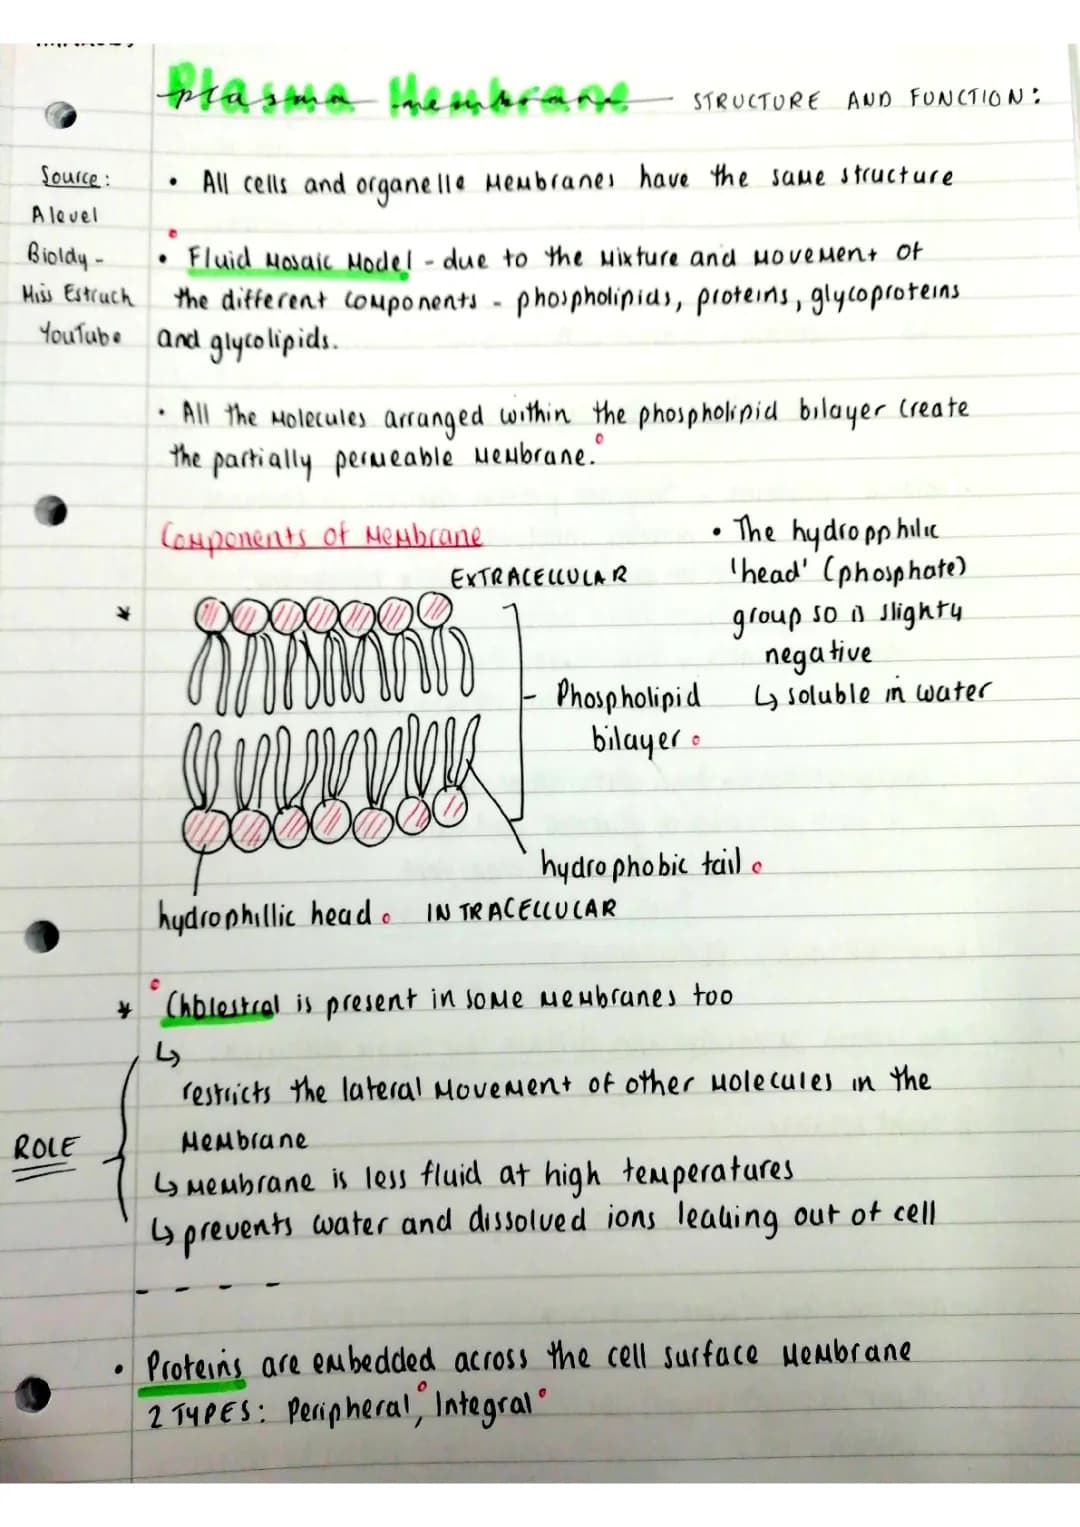 Plasma Membrane STRUCTURE AND FUNCTION:
Source:
Alevel
Bioldy -
Miss Estruch
YouTube
• All cells and organelle Membranes have the same structure
• Fluid Mosaic Model - due to the Mixture and Movement of
the different components - phospholipids, proteins, glycoproteins
and glycolipids.
• All the Molecules arranged within the phospholipid bilayer create
the partially permeable Membrane.
Components of Membrane
EXTRACELLULAR
• The hydropphilic
'head' (phosphate)
group so is slighty
negative
↳ soluble in water
Phospholipid
bilayer
hydrophobic tail
hydrophillic head
INTRACELLULAR
* Cholestral is present in some Membranes too
↳
restricts the lateral Movement of other Molecules in the
Membrane
ROLE
↳ Membrane is less fluid at high temperatures
↳ prevents water and dissolved ions leaking out of cell
- - - -
• Proteins are embedded across the cell surface Membrane
2 TYPES: Peripheral, Integral